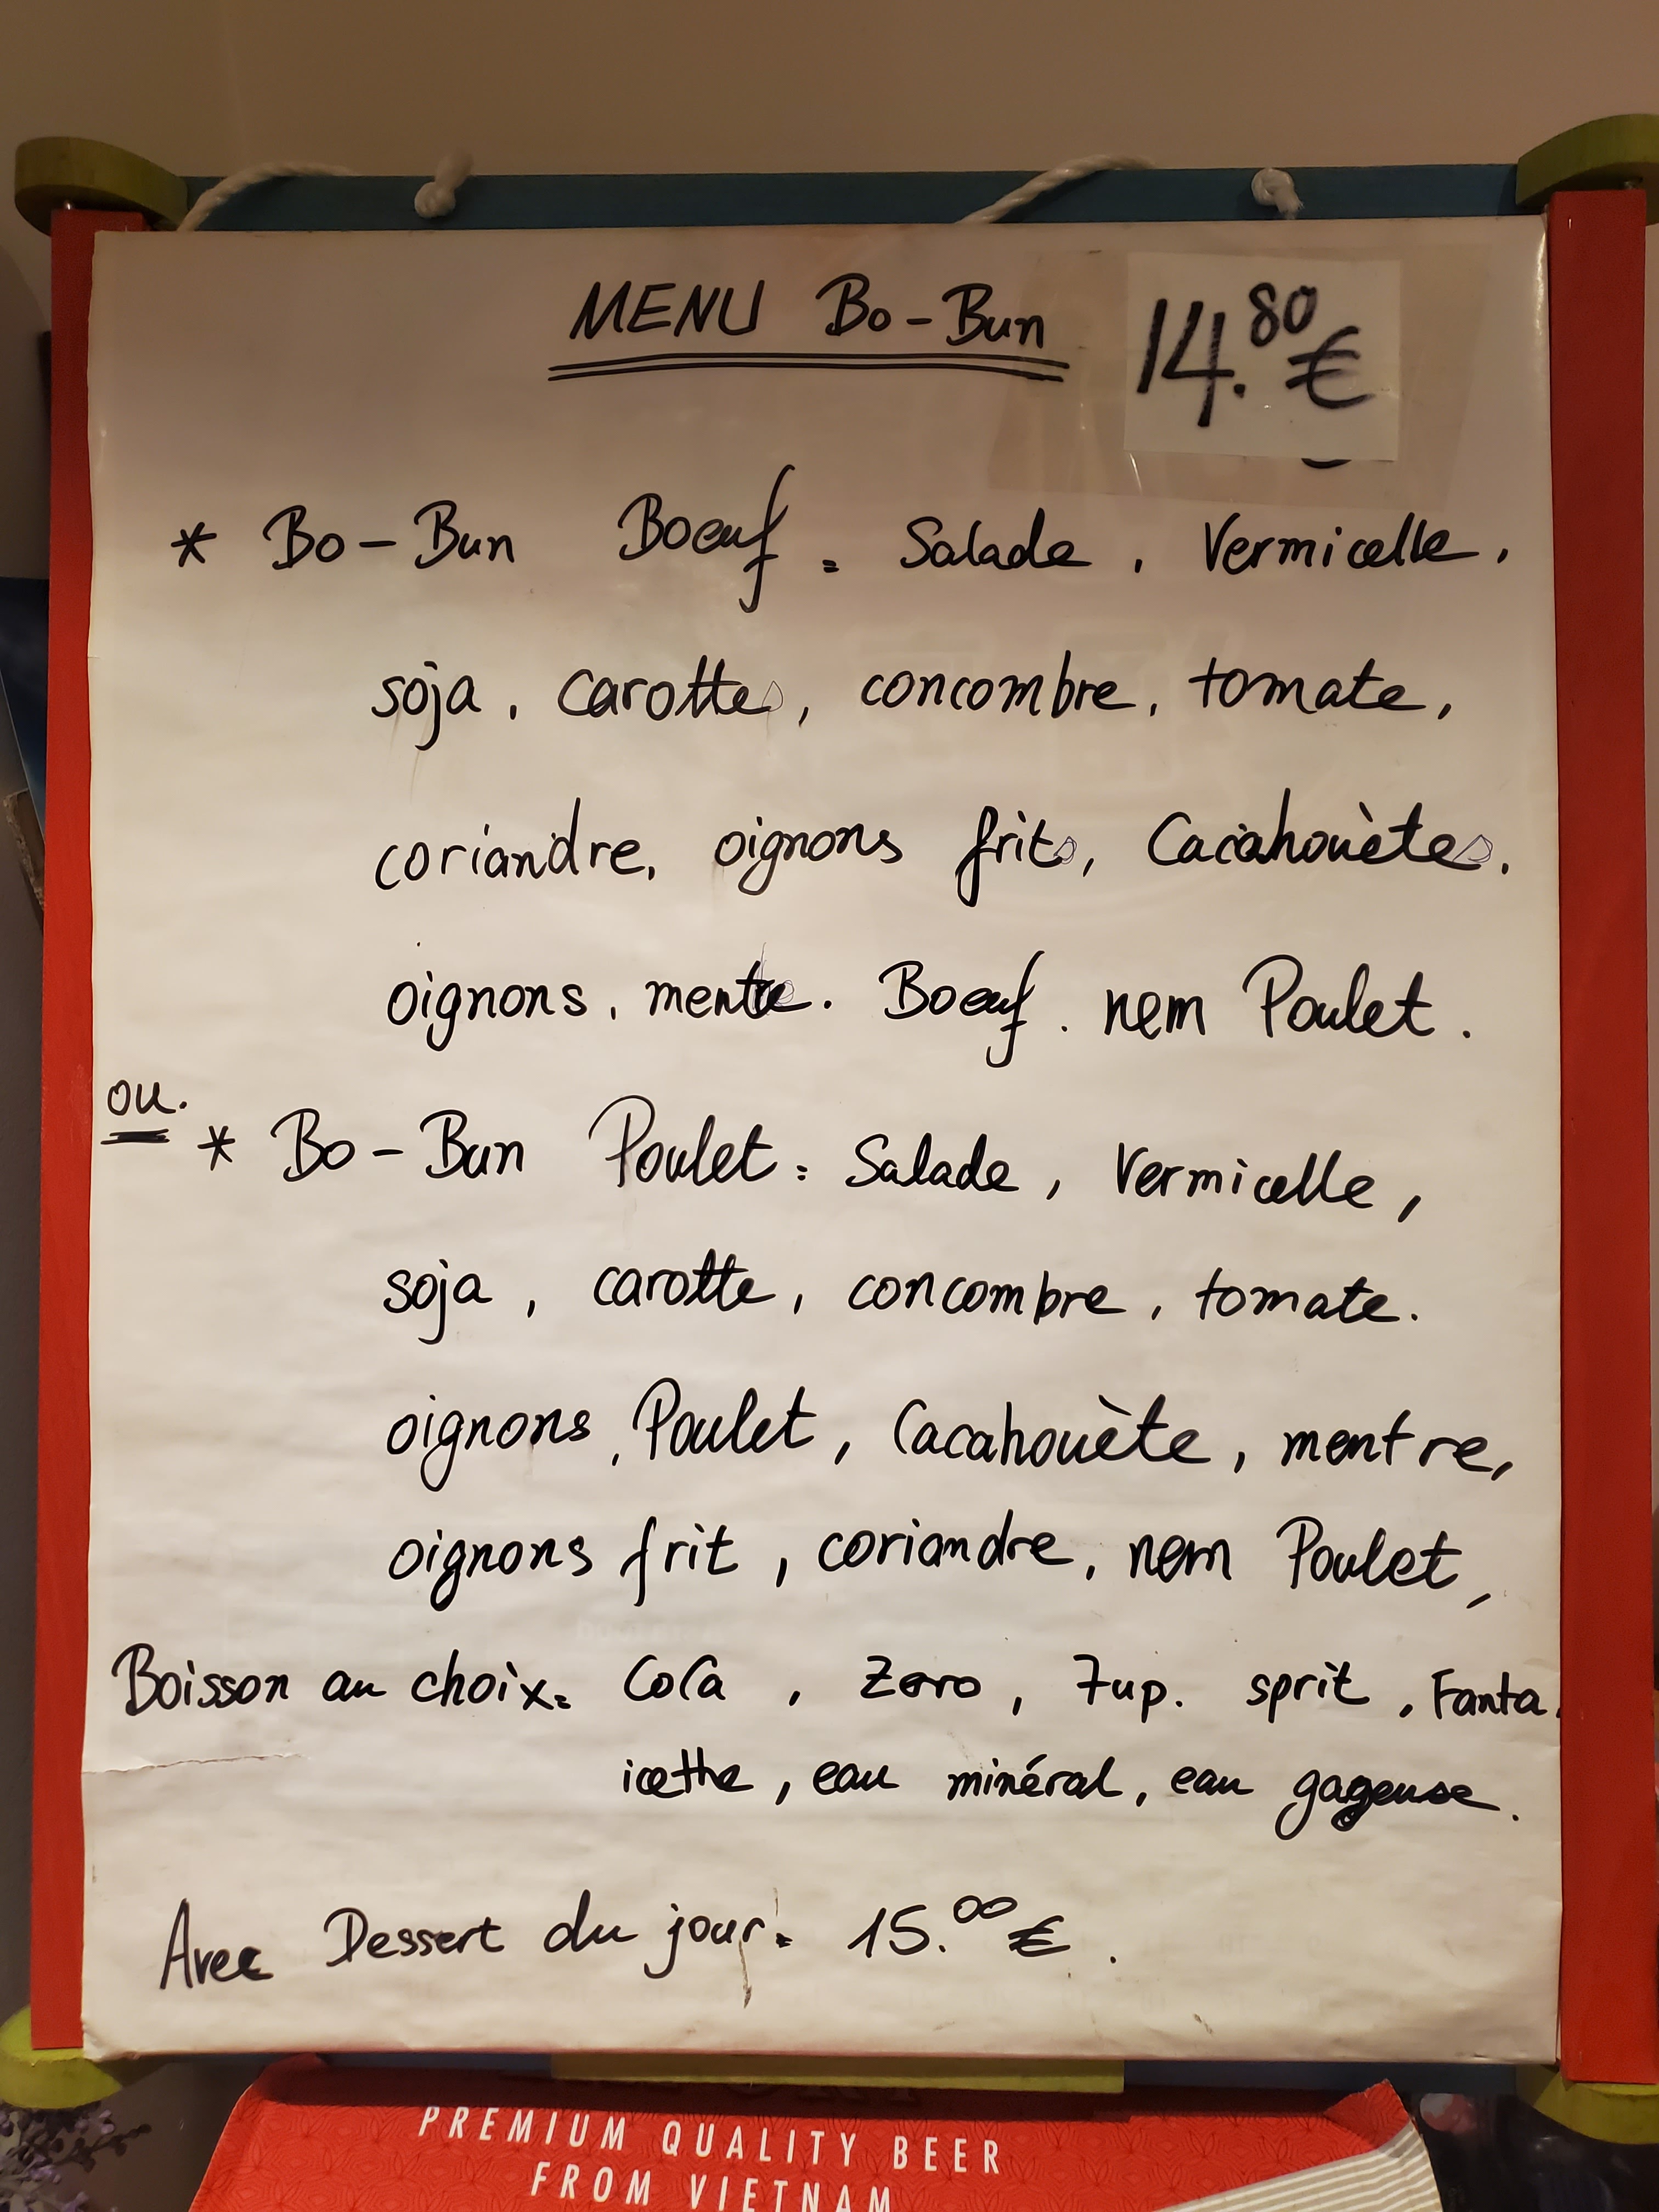 MENU Bo-Bun 14.80€
* Bo-Bun Boeuf = Salade, Vermicelle,
soja, carottes, concombre, tomate,
coriandre, oignons frits, Cacahouètes.
oignons, mente. Boeuf. nem Poulet.
ou.
* Bo-Bun Poulet = Salade, Vermicelle,
soja, carotte, concombre, tomate.
oignons, Poulet, Cacahouète, mentre,
oignons frit, coriandre, nem Poulet,
Boisson au choix= CoCa, Zero, 7up. sprit, Fanta.
icethe, eau minéral, eau gageuse.
Avec Dessert du jour= 15.00€.
PREMIUM QUALITY BEER
FROM VIETNAM